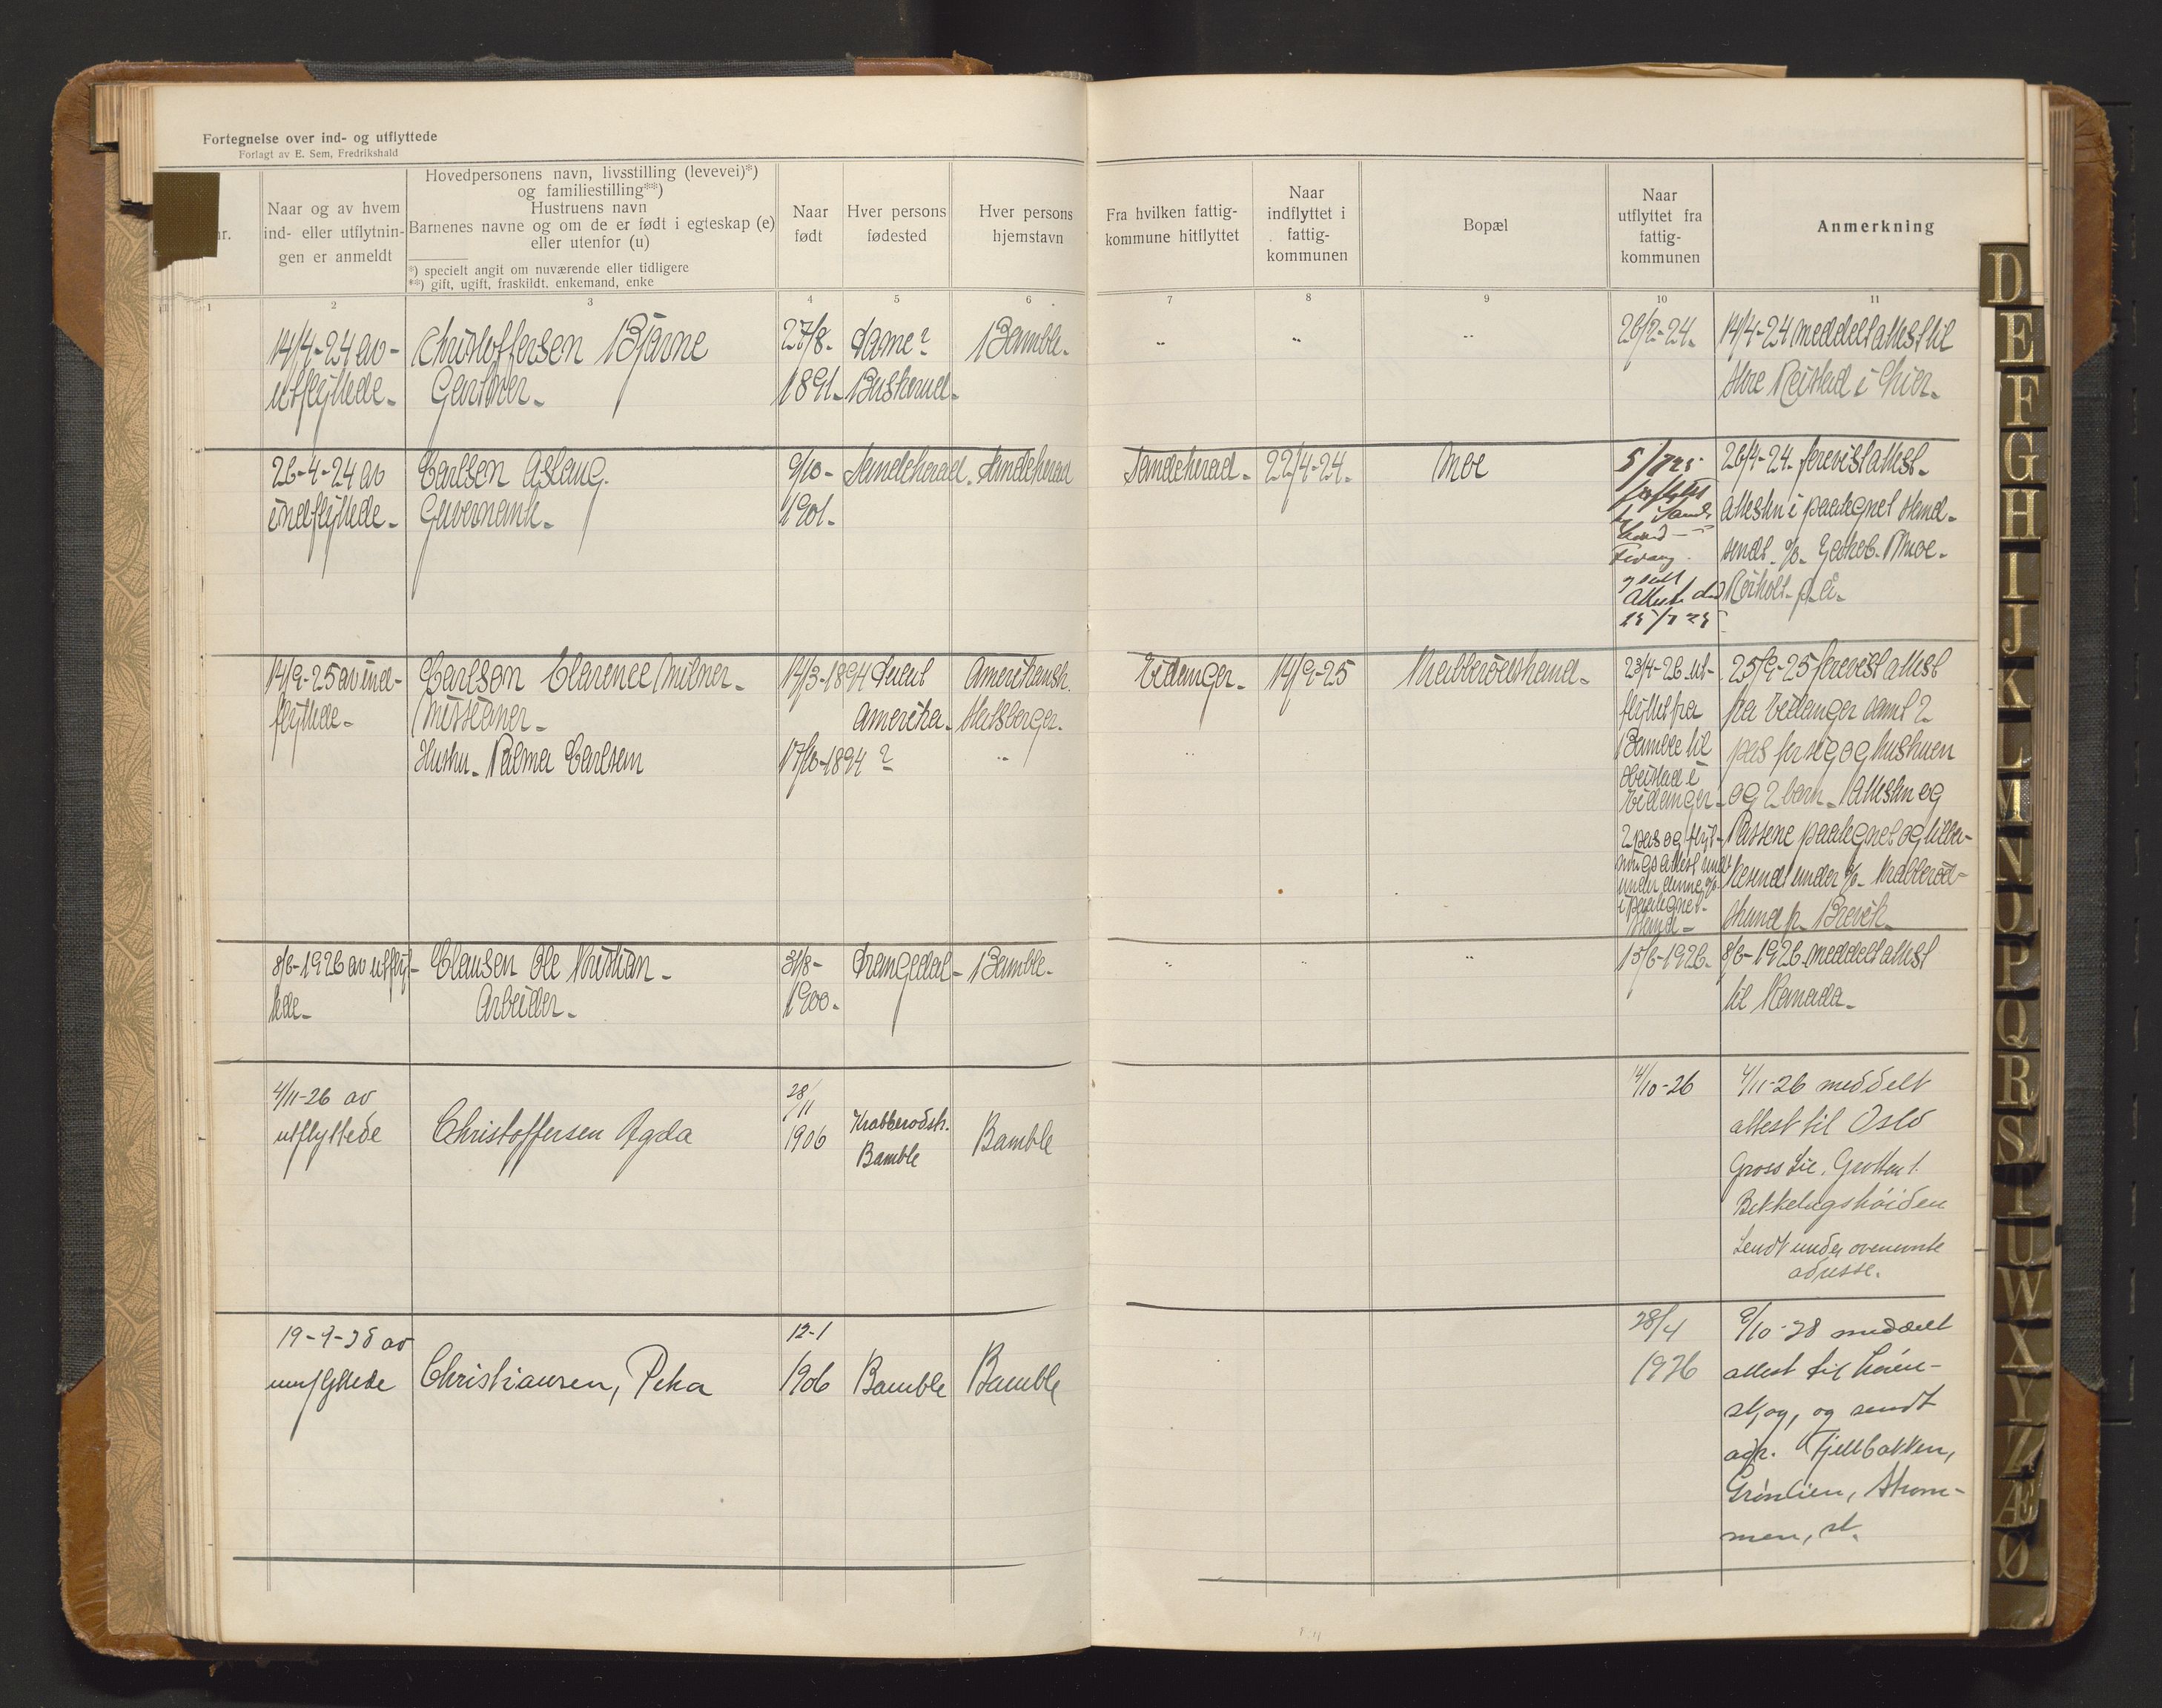 Fortegnelse over ind- og utflyttede
Forlagt av E. Sem, Fredrikshald
nr.
Naar og av hvem
ind- eller utflytnin-
gen er anmeldt
Hovedpersonens navn, livsstilling (levevei)*)
og familiestilling**)
Hustruens navn
Barnenes navne og om de er født i egteskap (e)
eller utenfor (u)
*) specielt angit om nuværende eller tidligere
**) gift, ugift, fraskildt, enkemand, enke
Naar
født
Hver persons
fødested
Hver persons
hjemstavn
Fra hvilken fattig-
kommune hitflyttet
Naar
indflyttet i
fattig-
kommunen
Bopæl
Naar
utflyttet fra
fattig-
kommunen
Anmerkning
1 2 3 4 5 6 7 8 9 10 11
14/4-24 av
utflyttede
Christoffersen Bjarne
Gartner
27/8-
1891
Buskerud
Bamble
26/2-24
14/4-24 meddelt attest til
i Lier
26-4-24 av
indflyttede
Carlsen Aslaug
Guvernante
9/10-
1901
Sandeherad
Sandeherad
Sandeherad
22/4-24
Moe
5/7 25
15/7 25
26/4-24 forevist attest
Attesten i paategnet stand
sendt Moe
14/9-25 av ind-
flyttede
Carlson Clarence Milner
Missioner
Hustru Palma Carlson
14/3-1894
17/10-1894
Amerika
?
Amerikansk
Statsborger
Eidanger
14/9-25
Krabberødstrand
23/4-26 ut-
flyttet fra
Bamble til
Heistad i
Eidanger
2 pas og flyt-
ningsattest sendt
under denne
i paategnet
stand
25/9-25 forevist attest
fra Eidanger samt 2
pas for sig og hustruen
og 2 barn. Attesten og
Passene paategnet og tilba-
kesendt under Krabberød-
strand pr. Brevik
8/6-1926 av utflyt-
tede
Clausen Ole Kristian
Arbeider
31/8-
1900
Drangedal
Bamble
15/6-1926
8/6-1926 meddelt attest
til Kanada
4/11-26 av
utflyttede
Christoffersen Agda
28/11
1906
Krabberødstr.
Bamble
Bamble
4/10-26
4/11-26 meddelt
attest til Oslo
Gross Lie, Grotten 1.
Bekkelagshöiden
Sendt under ovennevnte
adresse.
av
utflyttede
Christiansen, Petra
12-1
1906
Bamble
Bamble
28/4
9/10-28 meddelt
attest til Lören-
skog, og sendt
adr. Fjellbakken,
Grönlien, Strøm-
men, st.
D
E
F
G
H
I
J
K
L
M
N
O
P
Q
R
S
T
U
W
X
Y
Z
Æ
Ø